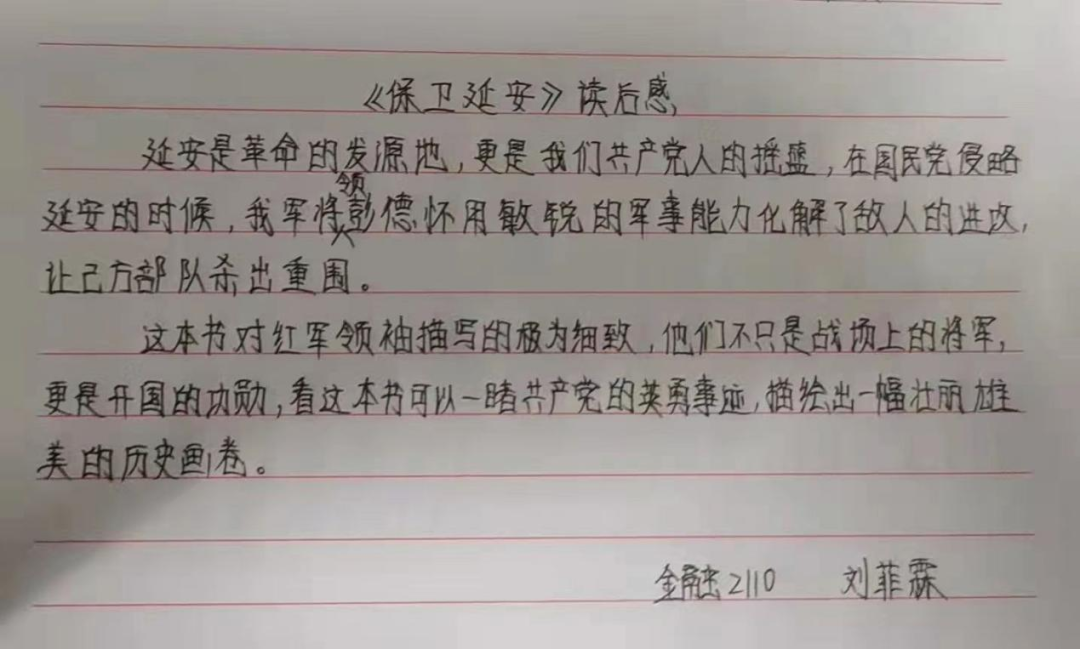 《保卫延安》读后感
延安是革命的发源地，更是我们共产党人的摇篮，在国民党侵略
延安的时候，我军将领彭德怀用敏锐的军事能力化解了敌人的进攻，
让己方部队杀出重围。
这本书对红军领袖描写的极为细致，他们不只是战场上的将军，
更是开国的功勋，看这本书可以一睹共产党的英勇事迹，描绘出一幅壮丽雄
美的历史画卷。
金融2110 刘菲霖